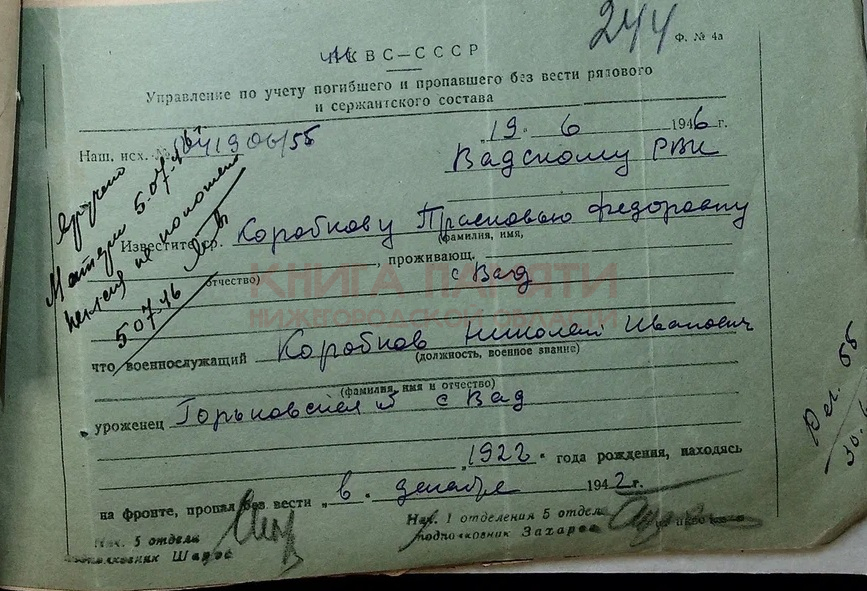 244
Ф. № 4а
НКВС—СССР
Управление по учету погибшего и пропавшего без вести рядового
и сержантского состава
"19" 6 1946 г.
Наш. исх. №
06/55
Вадскому РВК
Вручено
Матери 5.07.46
пенсия не положена
5 07 46
Известите гр. Коробкову Прасковью Федоровну
(фамилия, имя,
отчество)
, проживающ.
с Вад
КНИГА ПАМЯТИ
НИЖЕГОРОДСКОЙ ОБЛАСТИ
что военнослужащий Коробков Николай Иванович
(должность, военное звание)
(фамилия, имя и отчество)
уроженец Горьковская с Вад
"1922" года рождения, находясь
на фронте, пропал без вести "в" декабре 1942 г.
Нач. 5 отдела
подполковник Шаров
Нач. 1 отделения 5 отдела
подполковник Захаров